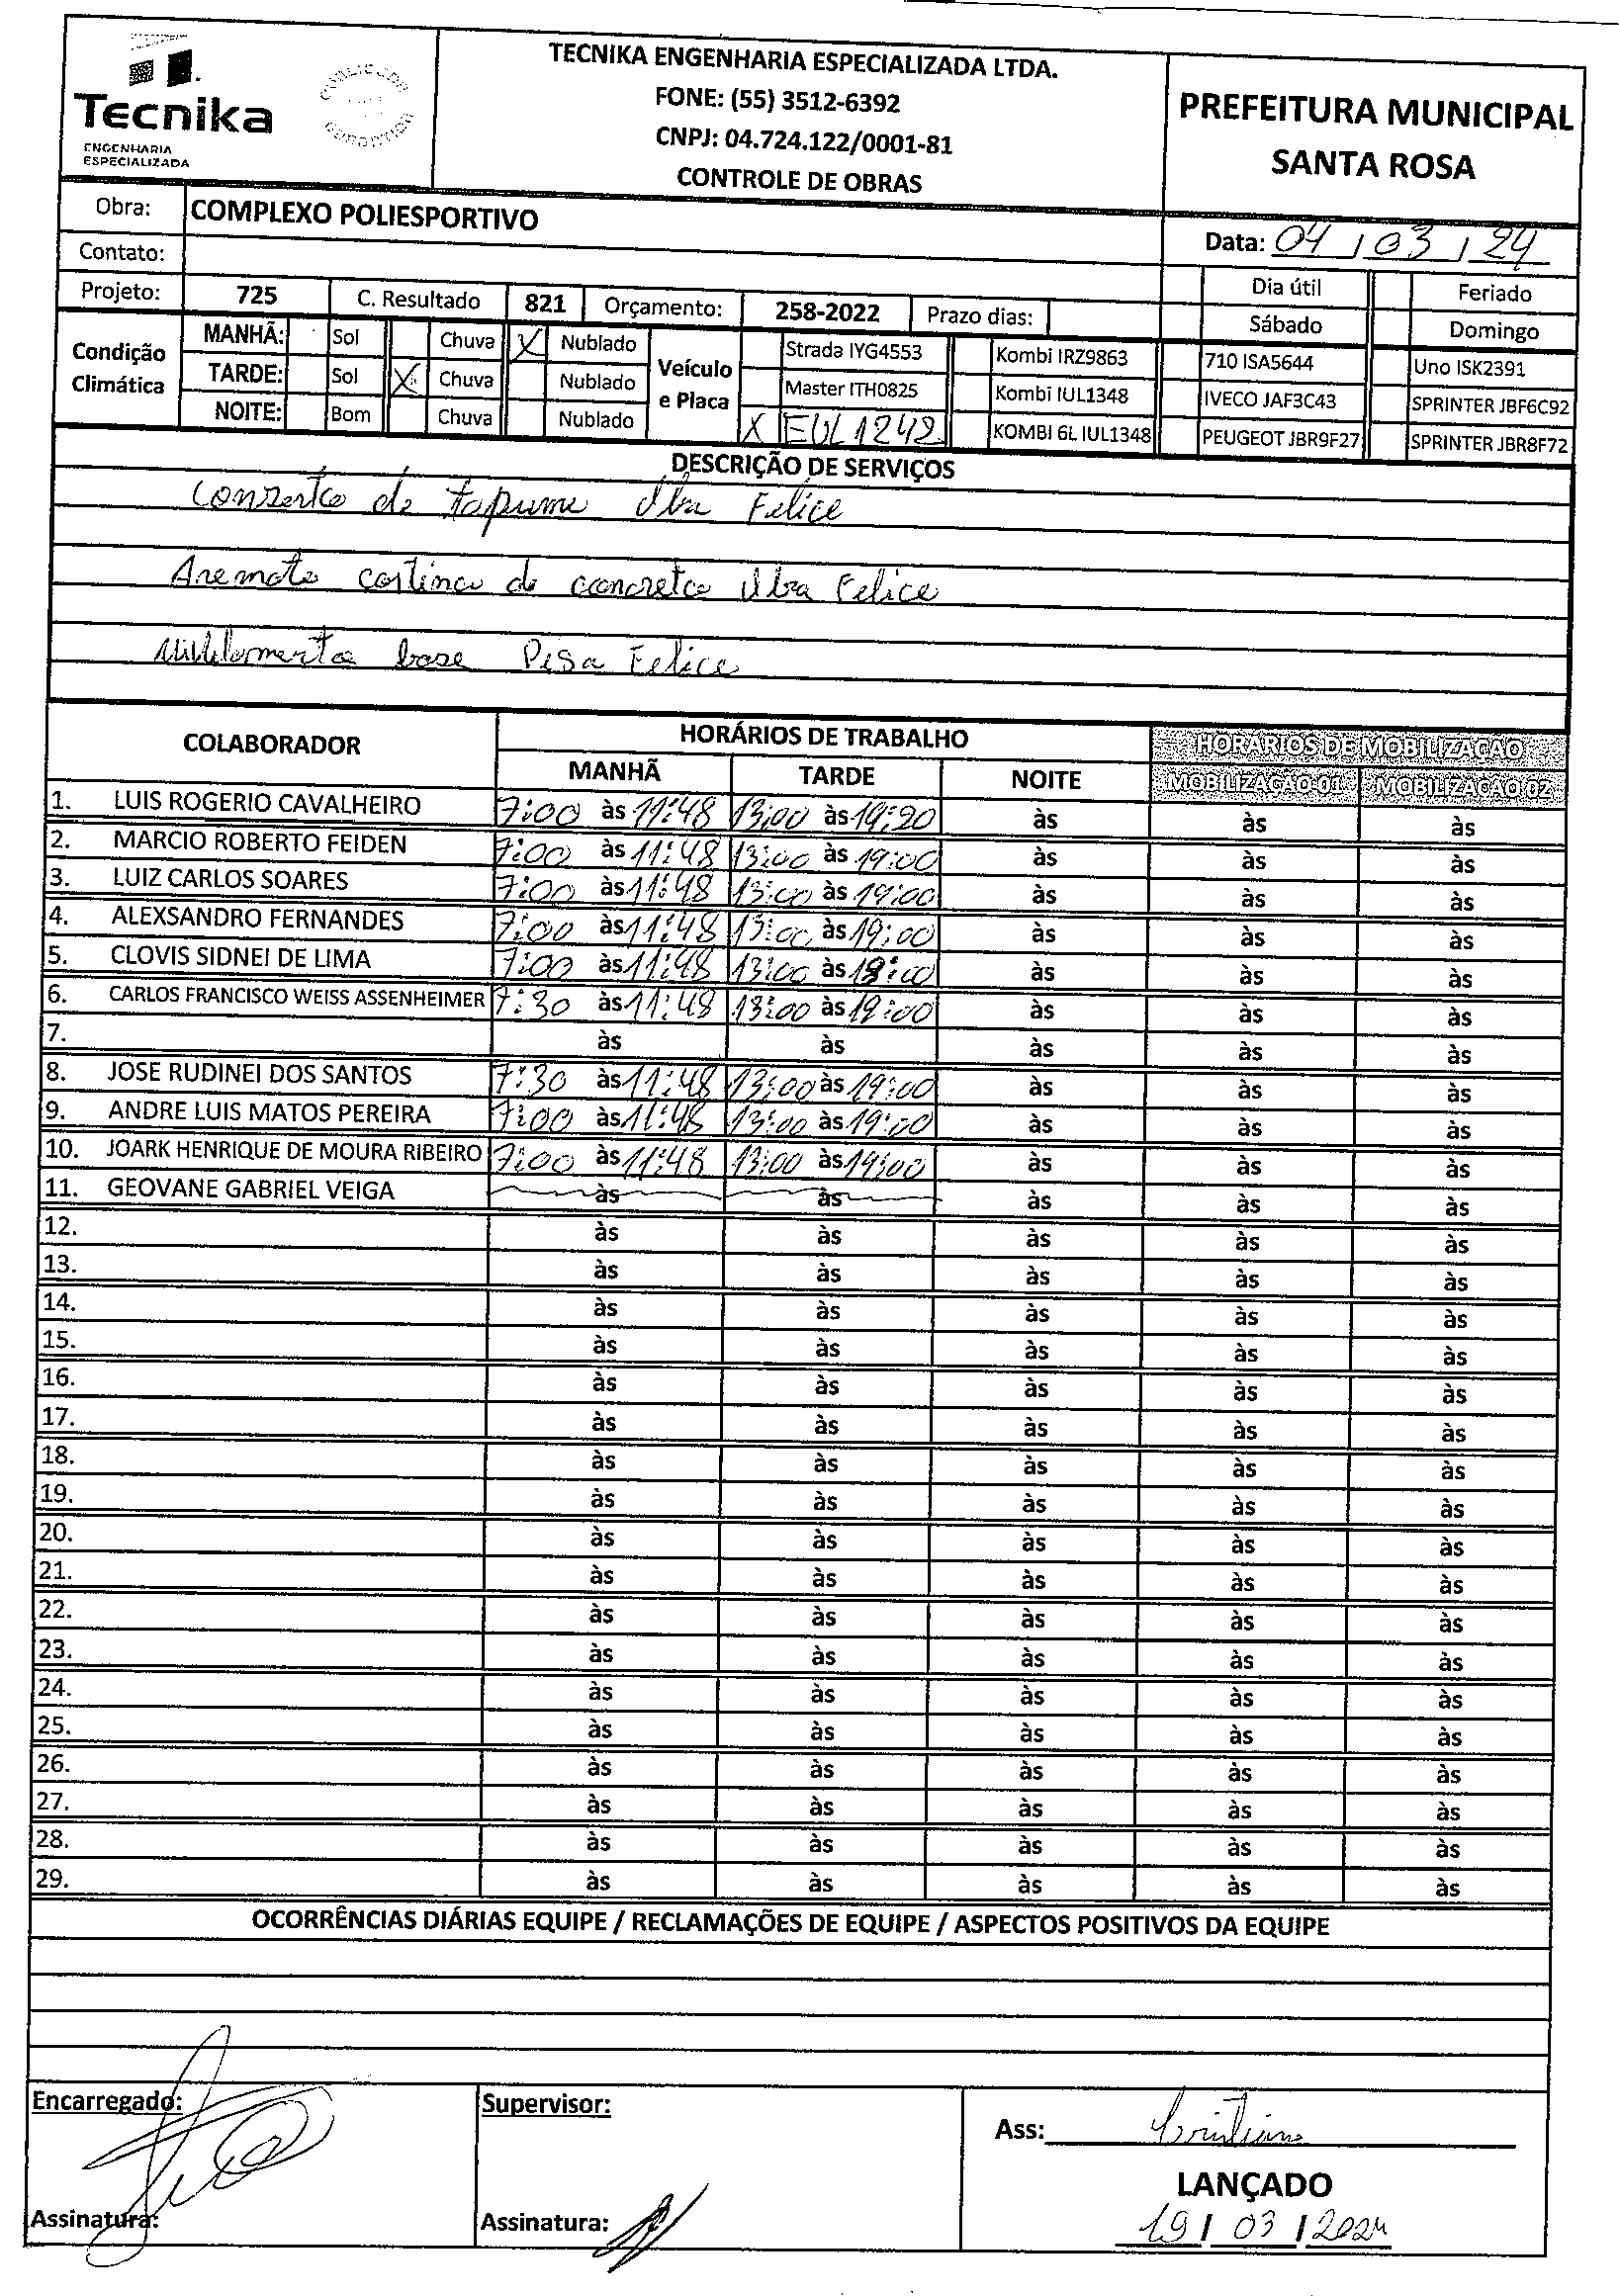 Tecnika
ENGENHARIA
ESPECIALIZADA
TECNIKA ENGENHARIA ESPECIALIZADA LTDA.
FONE: (55) 3512-6392
CNPJ: 04.724.122/0001-81
CONTROLE DE OBRAS
PREFEITURA MUNICIPAL
SANTA ROSA
Obra: COMPLEXO POLIESPORTIVO
Data: 04/03/24
Contato:
Projeto: 725 C. Resultado 821 Orçamento: 258-2022 Prazo dias:
Dia útil Feriado
Sábado Domingo
Condição Climática
MANHÃ: Sol Chuva X Nublado
TARDE: Sol X Chuva Nublado
NOITE: Bom Chuva Nublado
Veículo e Placa
Strada IYG4553 Kombi IRZ9863 710 ISA5644 Uno ISK2391
Master ITH0825 Kombi IUL1348 IVECO JAF3C43 SPRINTER JBF6C92
X EUL1242 KOMBI 6L IUL1348 PEUGEOT JBR9F27 SPRINTER JBR8F72
DESCRIÇÃO DE SERVIÇOS
Conserto de tapume Felice
cortina de concreto Felice
base Felice
COLABORADOR HORÁRIOS DE TRABALHO HORÁRIOS DE MOBILIZAÇÃO
MANHÃ TARDE NOITE MOBILIZAÇÃO 01 MOBILIZAÇÃO 02
1. LUIS ROGERIO CAVALHEIRO 7:00 às 11:48 13:00 às 19:20 às às às
2. MARCIO ROBERTO FEIDEN 7:00 às 11:48 13:00 às 19:00 às às às
3. LUIZ CARLOS SOARES 7:00 às 11:48 13:00 às 19:00 às às às
4. ALEXSANDRO FERNANDES 7:00 às 11:48 13:00 às 19:00 às às às
5. CLOVIS SIDNEI DE LIMA 7:00 às 11:48 13:00 às 18:00 às às às
6. CARLOS FRANCISCO WEISS ASSENHEIMER 7:30 às 11:48 13:00 às 19:00 às às às
7. às às às às às
8. JOSE RUDINEI DOS SANTOS 7:30 às 11:48 13:00 às 19:00 às às às
9. ANDRE LUIS MATOS PEREIRA 7:00 às 11:48 13:00 às 19:00 às às às
10. JOARK HENRIQUE DE MOURA RIBEIRO 7:00 às 11:48 13:00 às 19:00 às às às
11. GEOVANE GABRIEL VEIGA às às às às às
12. às às às às às
13. às às às às às
14. às às às às às
15. às às às às às
16. às às às às às
17. às às às às às
18. às às às às às
19. às às às às às
20. às às às às às
21. às às às às às
22. às às às às às
23. às às às às às
24. às às às às às
25. às às às às às
26. às às às às às
27. às às às às às
28. às às às às às
29. às às às às às
OCORRÊNCIAS DIÁRIAS EQUIPE / RECLAMAÇÕES DE EQUIPE / ASPECTOS POSITIVOS DA EQUIPE
Encarregado: Supervisor:
Ass: Cristiane
LANÇADO
Assinatura: Assinatura:
19/03/2024